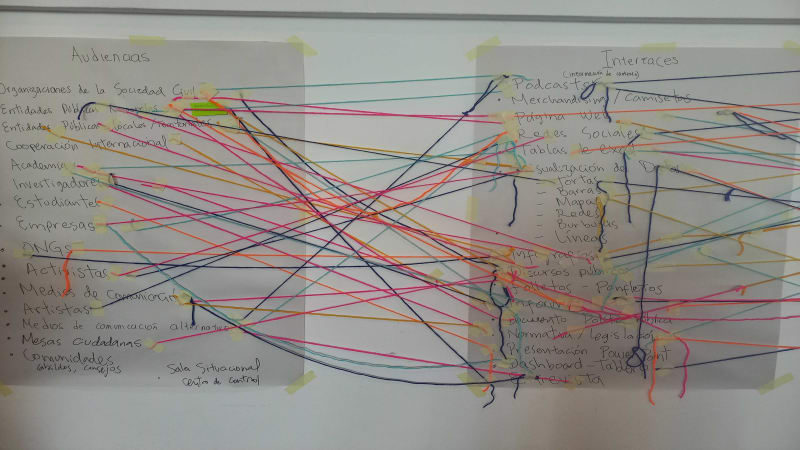 Audiencias
Organizaciones de la Sociedad Civil
Entidades Públicas
Entidades Públicas Locales / Territoriales
Cooperación Internacional
Academia
Investigadores
Estudiantes
Empresas
ONGs
Activistas
Medios de Comunicación
Artistas
Medios de comunicación alternativos
Mesas ciudadanas
Comunidades
cabildos, consejos
Sala Situacional
Centro de Control
Interfaces
Podcasts
Merchandising / Camisetas
Página Web
Redes Sociales
Tablas de Excel
- Tortas
- Barras
- Mapas
- Redes
- Burbujas
- Líneas
Infografías
Discursos públicos
Folletos - Panfletos
Normativa / legislación
Presentación PowerPoint
Dashboard - Tablero